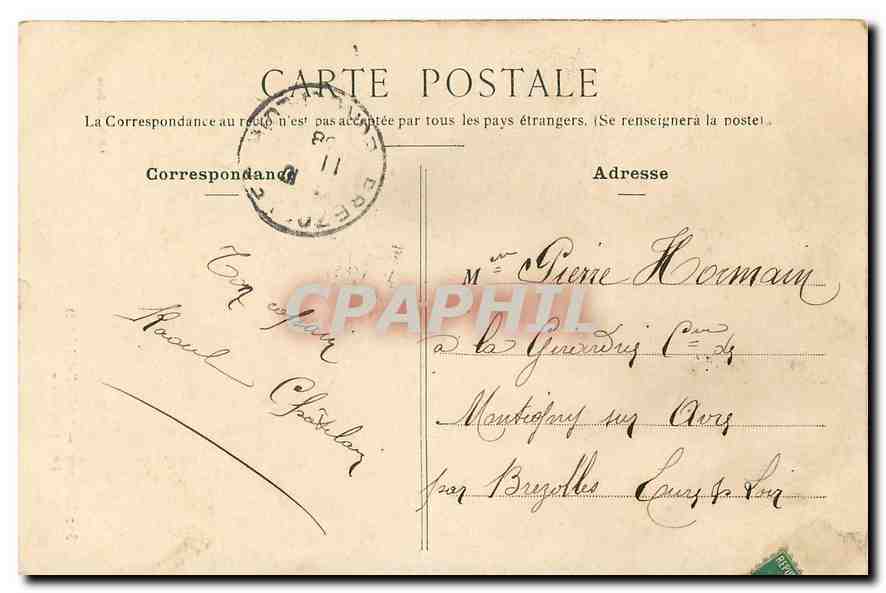 CARTE POSTALE
La Correspondance au recto n'est pas acceptée par tous les pays étrangers. (Se renseigner à la poste).
Correspondance
Adresse
Ton copain
Raoul Châtelain
Mr Pierre Hormain
à la Cne de
Montigny sur Avre
par Brezolles Eure & Loir
CPAPHIL
11
08
REPU